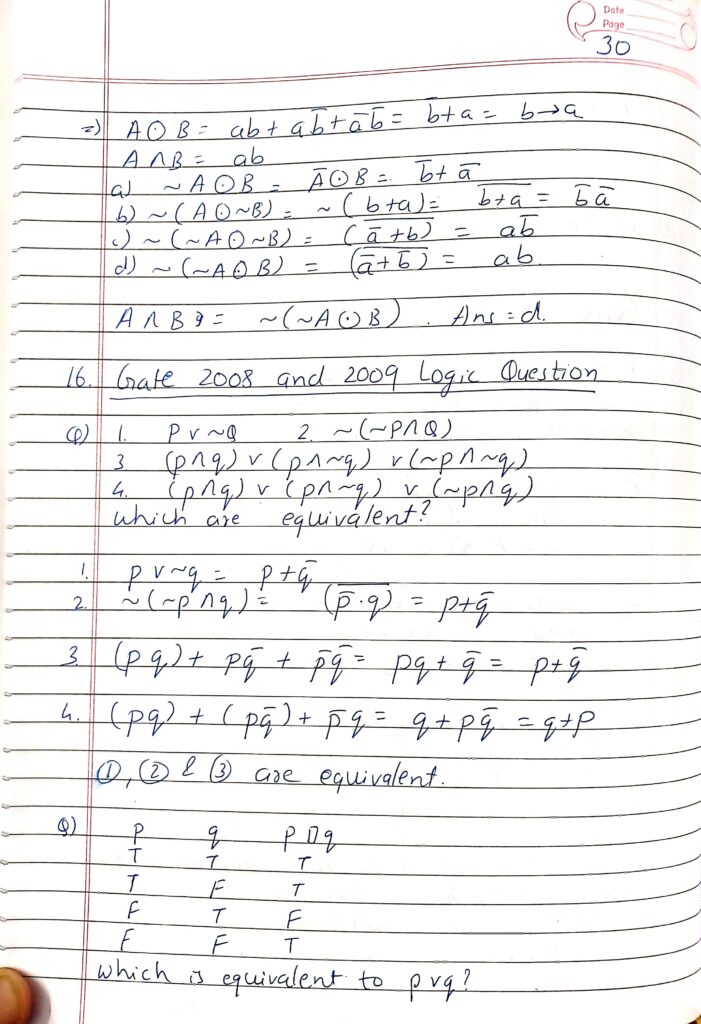 Date
Page
30
=) A ⊙ B = ab + ab̅ + a̅b̅ = b̅ + a = b → a
A ∧ B = ab
a) ~A ⊙ B = A̅ ⊙ B = b̅ + a̅
b) ~(A ⊙ ~B) = ~(b + a) = \overline{b + a} = b̅ a̅
c) ~(~A ⊙ ~B) = (\overline{a̅ + b}) = ab̅
d) ~(~A ⊙ B) = (\overline{a̅ + b̅}) = ab.
A ∧ B = ~(~A ⊙ B). Ans = d.
16. Gate 2008 and 2009 Logic Question
Q) 1. P ∨ ~Q 2. ~(~P ∧ Q)
3 (p ∧ q) ∨ (p ∧ ~q) ∨ (~p ∧ ~q)
4. (p ∧ q) ∨ (p ∧ ~q) ∨ (~p ∧ q)
which are equivalent?
1. p ∨ ~q = p + q̅
2. ~(~p ∧ q) = (\overline{p̅ · q}) = p + q̅
3 (pq) + pq̅ + p̅q̅ = pq + q̅ = p + q̅
4. (pq) + (pq̅) + p̅q = q + pq̅ = q + p
①, ② & ③ are equivalent.
Q) p q p ⊓ q
T T T
T F T
F T F
F F T
which is equivalent to p ∨ q?